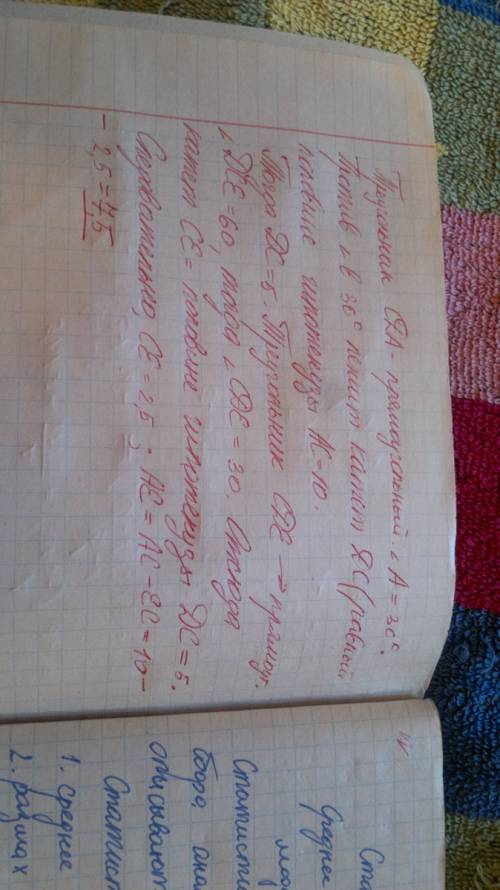 Треугольник CDA - прямоугольный. ∠A = 30°.
Против ∠ в 30° лежит катет DC (равный
половине гипотенузы AC = 10.
Тогда DC = 5. Треугольник CDE → прямоуг.
∠ DCE = 60, тогда ∠ CDE = 30. Отсюда
катет CE = половине гипотенузы DC = 5.
Следовательно, CE = 2,5; AE = AC - EC = 10 -
- 2,5 = 7,5
Среднее
Статисти
бора, ана
описывают
Статист
1. среднее
2. размах